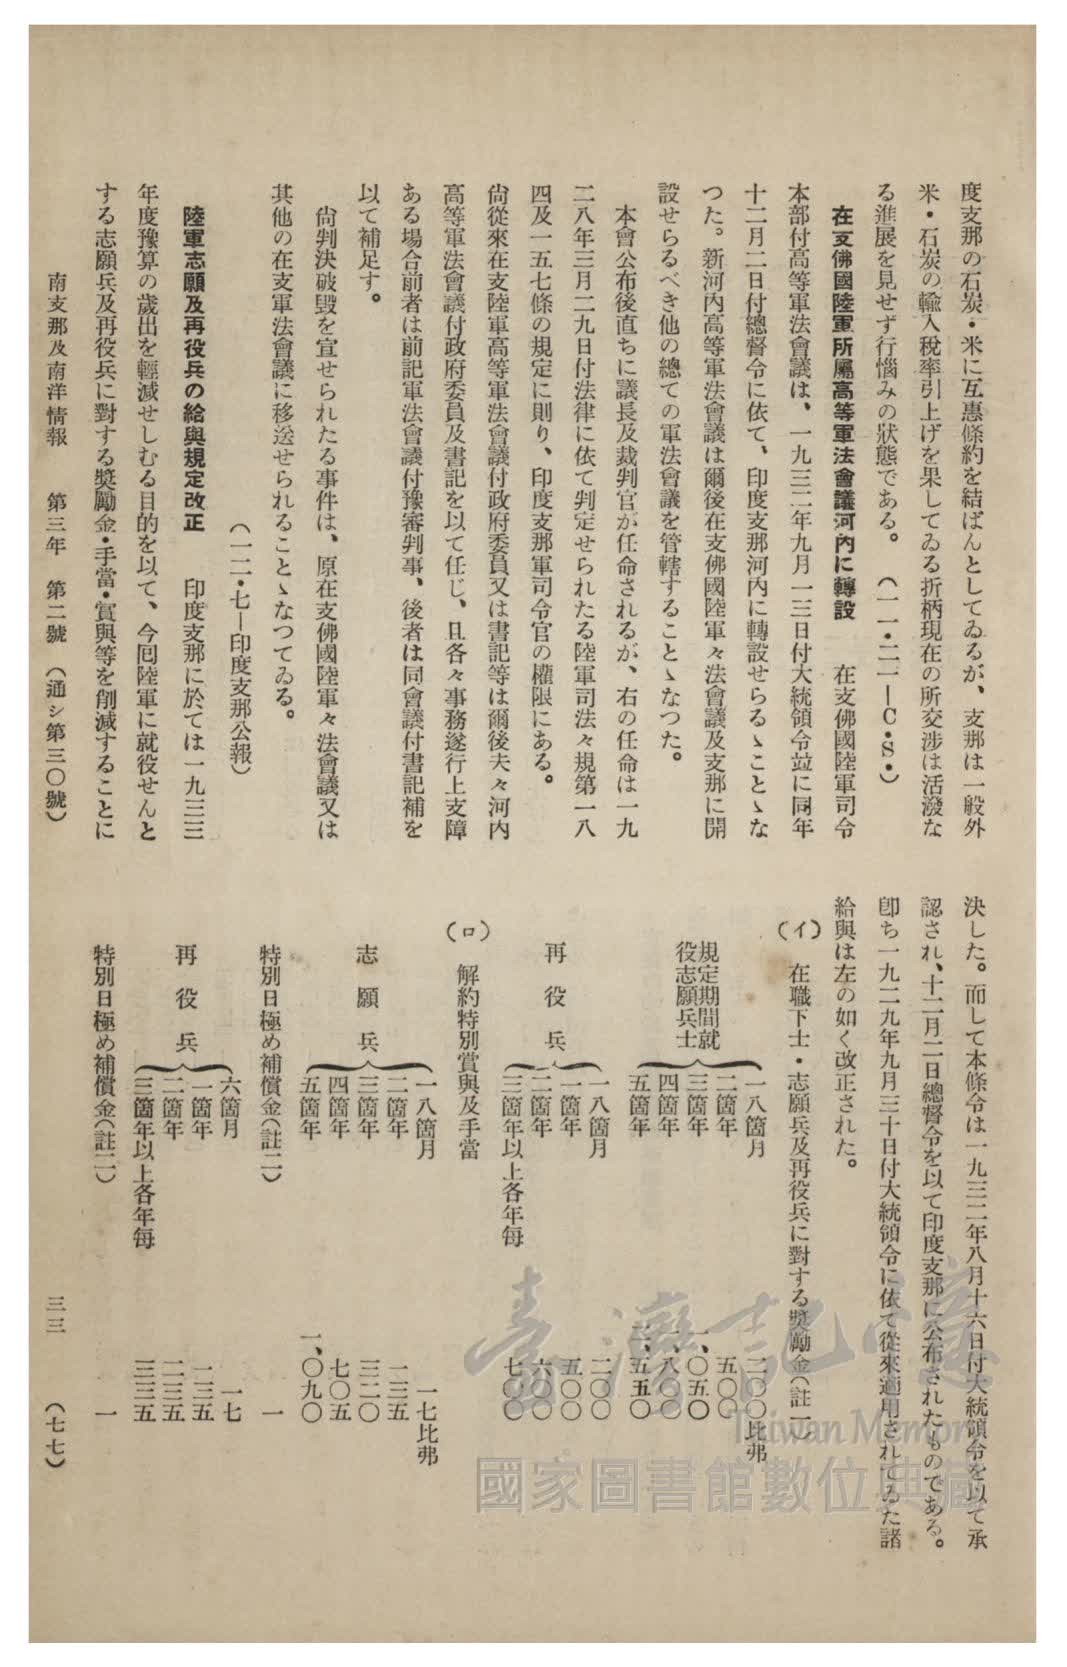 度支那の石炭・米に互惠條約を結ばんとしてゐるが、支那は一般外
米・石炭の輸入稅率引上げを果してゐる折柄現在の所交涉は活潑な
る進展を見せず行惱みの狀態である。　（一一・二一—C・S・）
在支佛國陸軍所屬高等軍法會議河內に轉設　　在支佛國陸軍司令
本部付高等軍法會議は、一九三二年九月一三日付大統領令竝に同年
十二月二日付總督令に依て、印度支那河內に轉設せらるゝことゝな
つた。新河內高等軍法會議は爾後在支佛國陸軍々法會議及支那に開
設せらるべき他の總ての軍法會議を管轄することゝなつた。
本會公布後直ちに議長及裁判官が任命されるが、右の任命は一九
二八年三月二九日付法律に依て判定せられたる陸軍司法々規第一八
四及一五七條の規定に則り、印度支那軍司令官の權限にある。
尙從來在支陸軍高等軍法會議付政府委員又は書記等は爾後夫々河內
高等軍法會議付政府委員及書記を以て任じ、且各々事務遂行上支障
ある場合前者は前記軍法會議付豫審判事、後者は同會議付書記補を
以て補足す。
尙判決破毀を宣せられたる事件は、原在支佛國陸軍々法會議又は
其他の在支軍法會議に移送せられることゝなつてゐる。
（一二・七—印度支那公報）
陸軍志願及再役兵の給與規定改正　　印度支那に於ては一九三三
年度豫算の歲出を輕減せしむる目的を以て、今囘陸軍に就役せんと
する志願兵及再役兵に對する獎勵金・手當・賞與等を削減することに
決した。而して本條令は一九三二年八月十六日付大統領令を以て承
認され、十二月二日總督令を以て印度支那に公布されたものである。
卽ち一九二九年九月三十日付大統領令に依て從來適用されてゐた諸
給與は左の如く改正された。
（イ）　在職下士・志願兵及再役兵に對する獎勵金（註一）
規定期間就役志願兵士
一八箇月　二〇〇比弗
二箇年　五〇〇
三箇年　一、〇五〇
四箇年　一、八〇〇
五箇年　二、五五〇
再役兵
一八箇月　二〇〇
一箇年　五〇〇
二箇年　六〇〇
三箇年以上各年每　七〇〇
（ロ）　解約特別賞與及手當
志願兵
一八箇月　一七比弗
二箇年　一三五
三箇年　三二〇
四箇年　七〇五
五箇年　一、〇九〇
特別日極め補償金（註二）　一
再役兵
六箇月　一七
一箇年　一三五
二箇年　二三五
三箇年以上各年每　三三五
特別日極め補償金（註二）　一
南支那及南洋情報　第三年　第二號　（通シ第三〇號）　三三　（七七）
臺灣記憶
Taiwan Memory
國家圖書館數位典藏